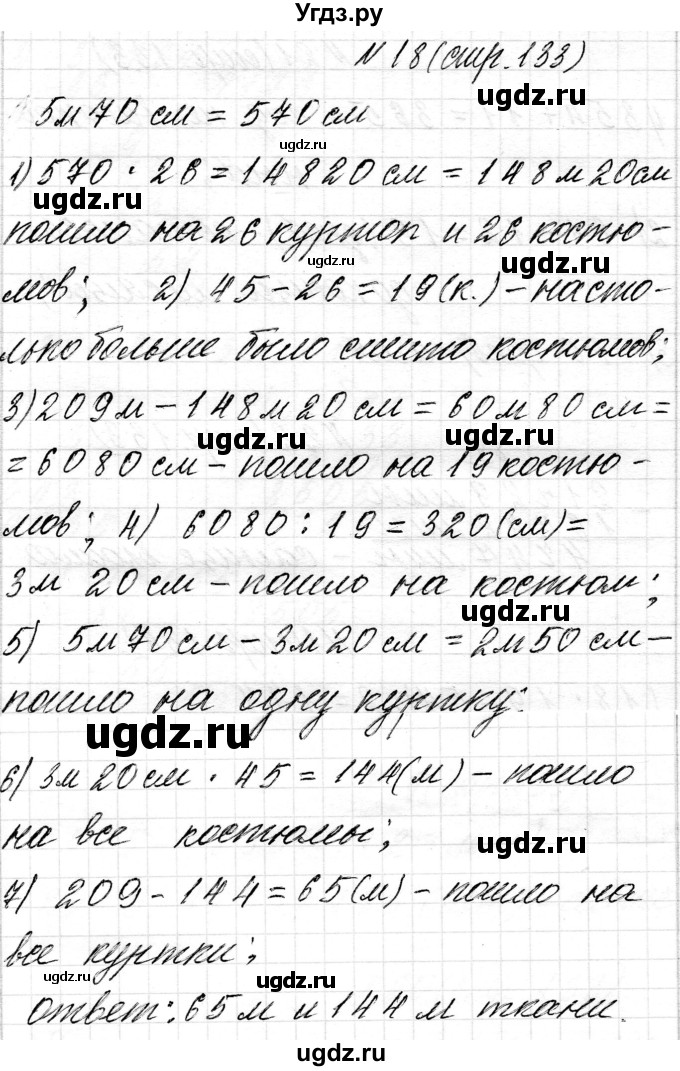 Угдз.ру
N 18 (стр. 133)
ugdz.ru
5м 70 см = 570 см
ugdz.ru
1) 570 · 26 = 14820 см = 148 м 20 см
ugdz.ru ugdz.ru
пошло на 26 курток и 26 костю-
ugdz.ru ugdz.ru
мов; 2) 45 - 26 = 19 (к.) - насто-
лько больше было сшито костюмов;
ugdz.ru
3) 209 м - 148 м 20 см = 60 м 80 см =
ugdz.ru ugdz.ru
= 6080 см - пошло на 19 костю-
мов; 4) 6080 : 19 = 320 (см) =
3 м 20 см - пошло на костюм;
ugdz.ru
5) 5 м 70 см - 3 м 20 см = 2 м 50 см -
пошло на одну куртку:
ugdz.ru
6) 3 м 20 см · 45 = 144 (м) - пошло
на все костюмы;
ugdz.ru
7) 209 - 144 = 65 (м) - пошло на
все куртки;
ugdz.ru ugdz.ru
ответ: 65 м и 144 м ткани.
ugdz.ru